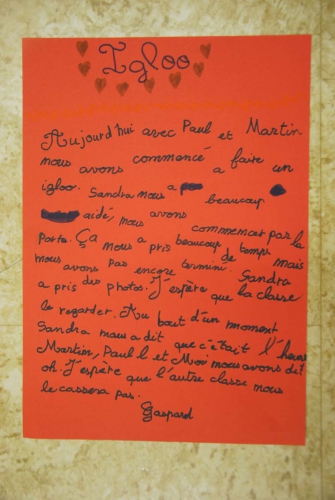 Igloo
Aujourd'hui avec Paul et Martin
nous avons commencé a faire un
igloo. Sandra nous a beaucoup
aidé, nous avons commencer par la
porte. Ça nous a pris beaucoup de temps mais
nous avons pas encore terminé. Sandra
a pris des photos. J'espère que la classe
le regarder. Au bout d'un moment
Sandra nous a dit que c'était l'heure
Martin, Paul l et Moi nous avons dit
oh. J'espère que l'autre classe nous
le cassera pas.
Gaspard